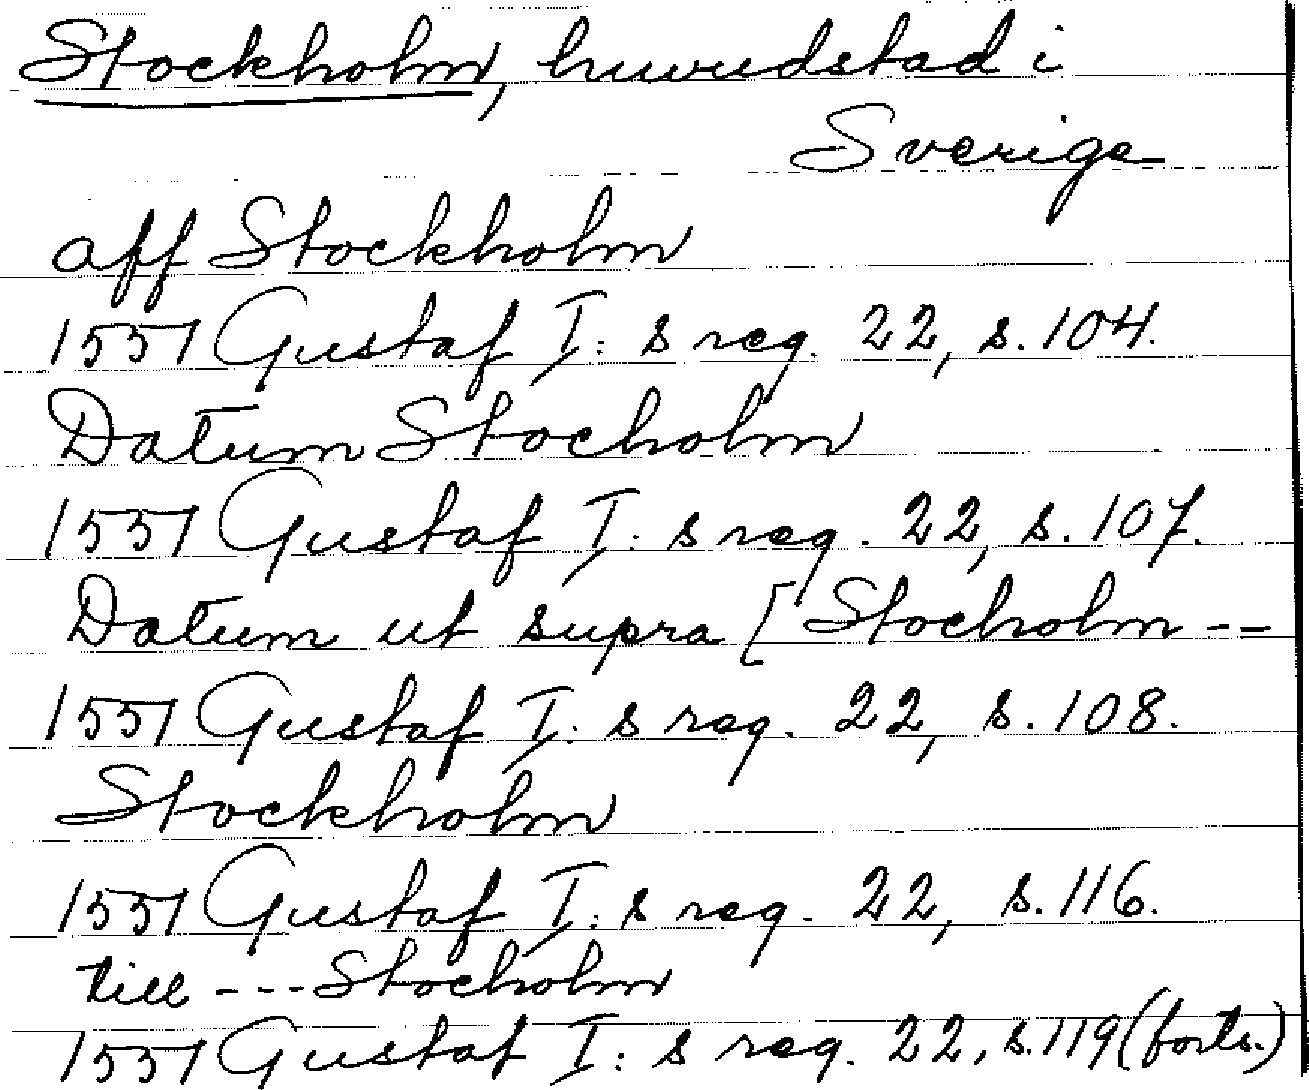 Stockholm, huvudstad i
Sverige
aff Stockholm
1551 Gustaf I: s reg. 22, s. 104.
Datum Stocholm
1551 Gustaf I: s reg. 22, s. 107.
Datum ut supra [Stocholm --
1551 Gustaf I: s reg. 22, s. 108.
Stockholm
1551 Gustaf I: s reg. 22, s. 116.
till --- Stocholm
1551 Gustaf I: s reg. 22, s. 119 (forts.)